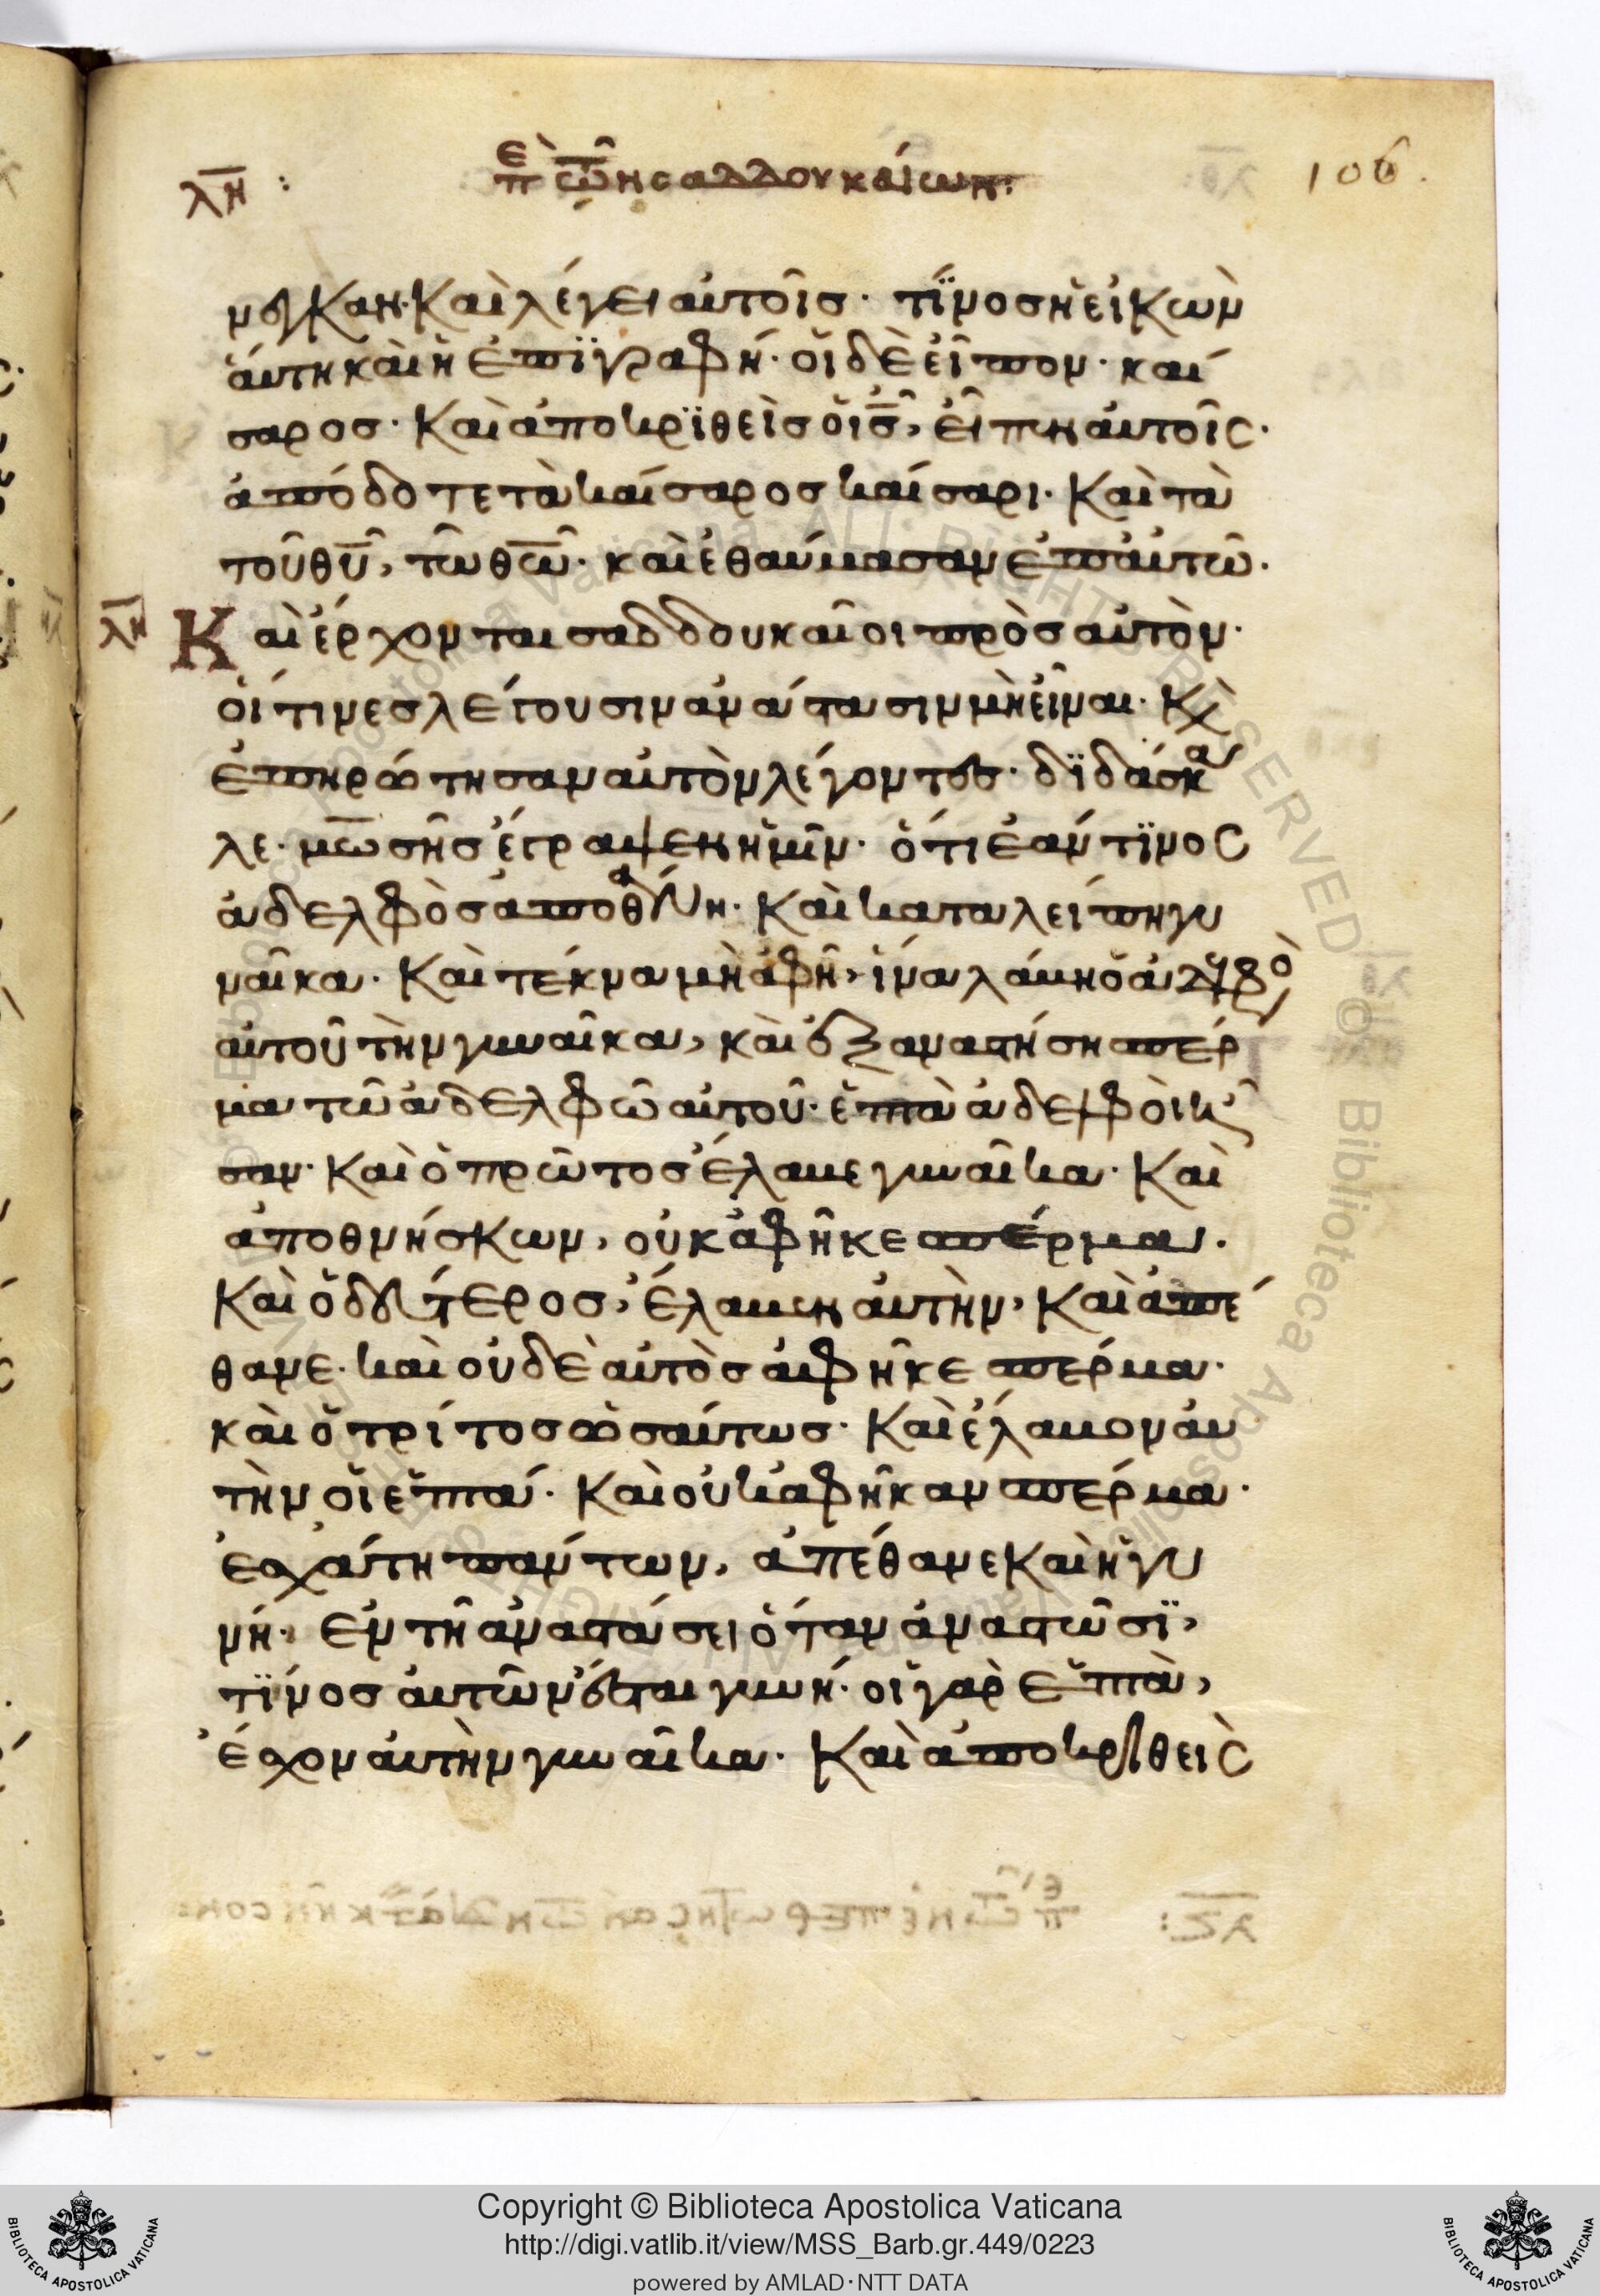 λη :
πε τῶν σαδδουκαίων:
106.
νεγκαν· Καὶ λέγει αὐτοῖς· τίνος ἡ εἰκὼν
αὕτη καὶ ἡ ἐπϊγραφή· οἱ δὲ εἶπον· καί
σαρος· Καὶ ἀποκρϊθεὶς ὁ ις, εἶπεν αὐτοῖς·
ἀπόδοτε τὰ καίσαρος καίσαρι· Καὶ τὰ
τοῦ θυ, τῶ θω· καὶ ἐθαύμασαν ἐπ' αὐτῶ·
λη
Καὶ ἔρχονται σαδδουκαῖοι πρὸς αὐτὸν·
οἵτινες λέγουσιν ἀνάστασιν μὴ εἶναι· Κὲ
ἐπηρώτησαν αὐτὸν λέγοντες· δϊδάσκα
λε· μωσῆς ἔγραψεν ἡμῖν· ὅτι ἐάν τϊνος
ἀδελφὸς ἀποθάνη· Καὶ καταλείπη γυ
ναῖκα· Καὶ τέκνα μὴ ἀφῆ, ἵνα λάβη ὁ ἀδελφὸ
αὐτοῦ τὴν γυναῖκα, καὶ ἐξαναστήση σπέρ
μα τῶ ἀδελφῶ αὐτοῦ· ἑπτὰ ἀδελφοὶ ἦ
σαν· Καὶ ὁ πρῶτος ἔλαβε γυναῖκα· Καὶ
ἀποθνήσκων, οὐκ ἀφῆκε σπέρμα·
Καὶ ὁ δεύτερος, ἔλαβεν αὐτὴν, Καὶ ἀπέ
θανε· καὶ οὐδὲ αὐτὸς ἀφῆκε σπέρμα·
καὶ ὁ τρίτος ὡσαύτως· Καὶ ἔλαβον αὐ
τὴν οἱ ἑπτά· Καὶ οὐκ ἀφῆκαν σπέρμα·
ἐσχάτη πάντων, ἀπέθανε Καὶ ἡ γυ
νή· Ἐν τῆ ἀναστάσει ὅταν ἀναστῶσϊ,
τϊνος αὐτῶν ἔσται γυνή· οἱ γὰρ ἑπτὰ,
ἔσχον αὐτὴν γυναῖκα· Καὶ ἀποκριθεὶς
Copyright © Biblioteca Apostolica Vaticana
http://digi.vatlib.it/view/MSS_Barb.gr.449/0223
powered by AMLAD·NTT DATA
BIBLIOTECA APOSTOLICA VATICANA
BIBLIOTECA APOSTOLICA VATICANA